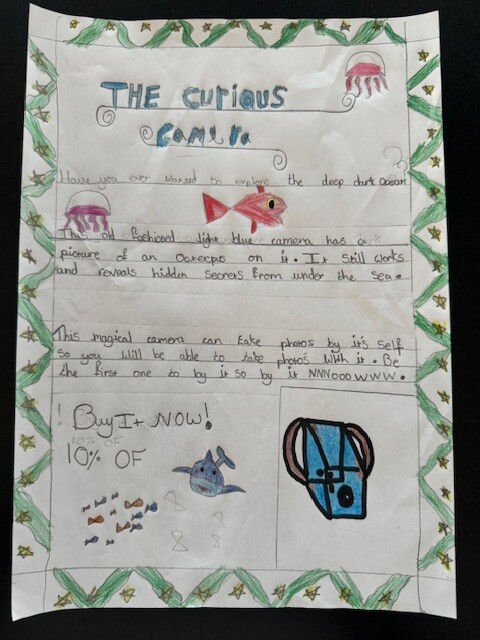 THE CURIOUS
Camera
Have you ever wanted to explore the deep dark Ocean?
This old fashioned light blue camera has a
picture of an Octecpus on it. It still works
and reveals hidden secrets from under the sea.
This magical camera can take photos by it's self
so you Will be able to take photos With it. Be
the first one to by it so by it NNNOOOWWW.
! Buy It NOW!
10% OF
10% OF